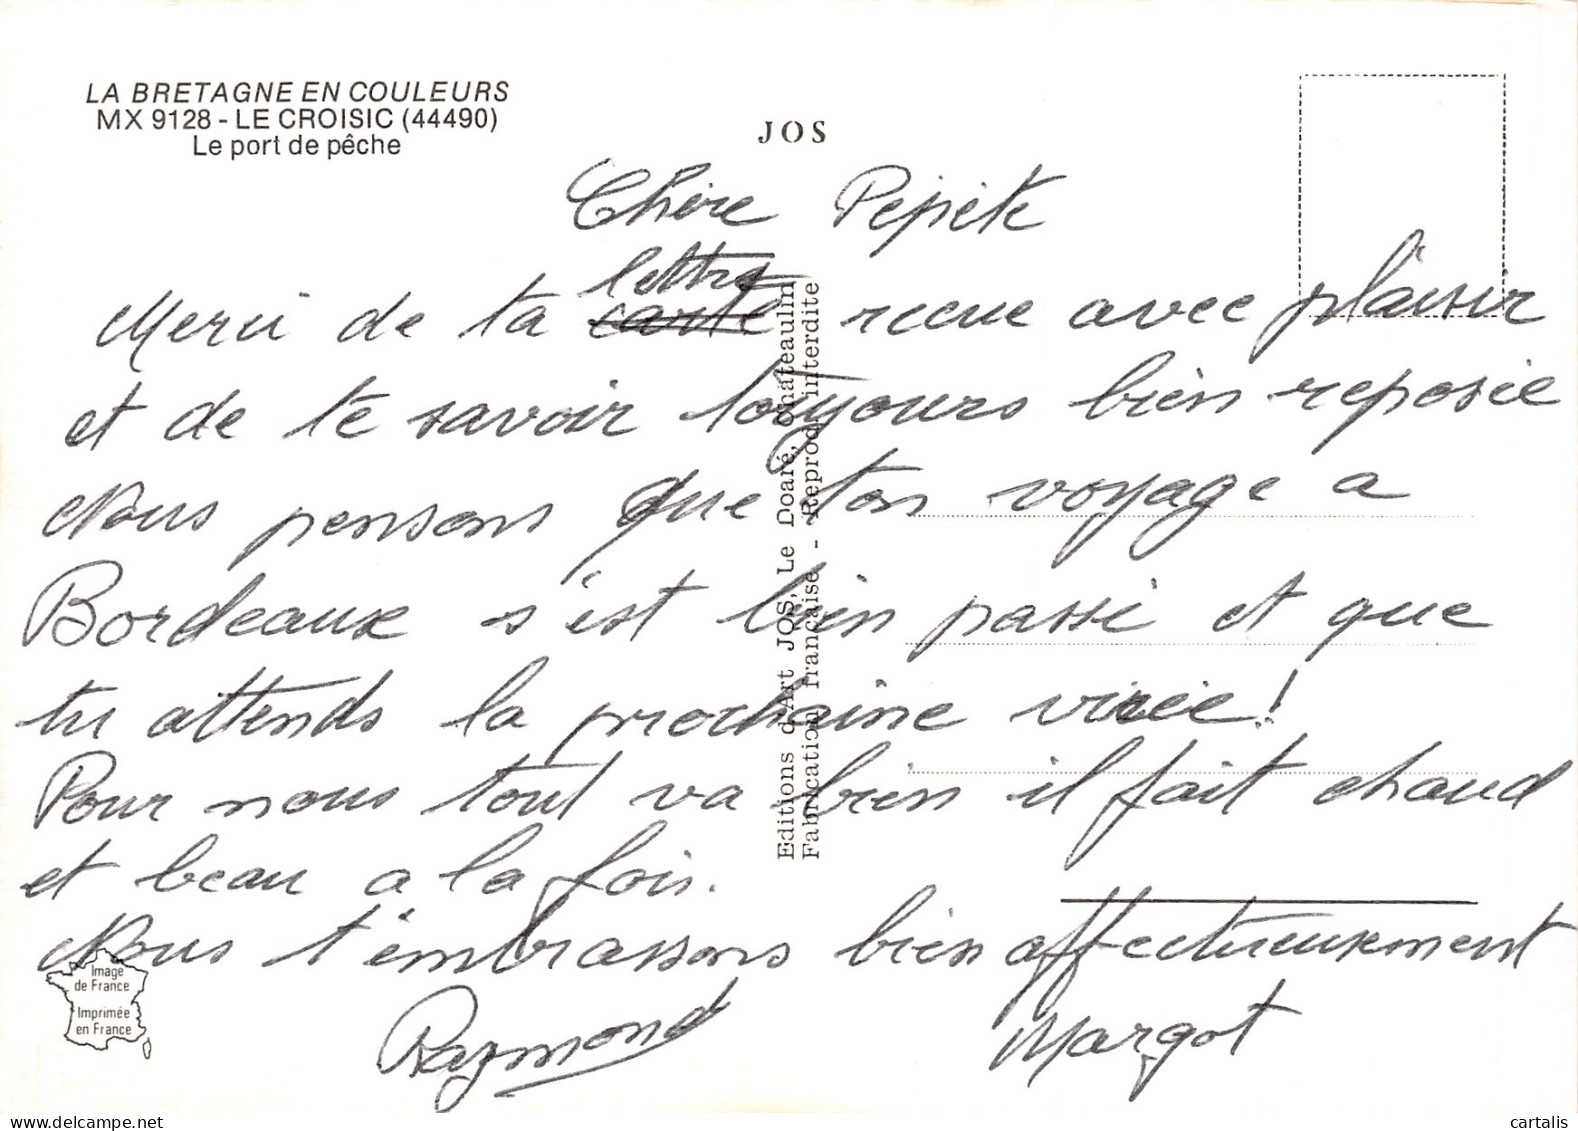 LA BRETAGNE EN COULEURS
MX 9128 - LE CROISIC (44490)
Le port de pêche
JOS
Chère Pépète
Merci de ta carte lettre recue avec plaisir
et de te savoir toujours bien reposée
Nous pensons que ton voyage a
Bordeaux s'est bien passé et que
tu attends la prochaine virée!
Pour nous tout va bien il fait chaud
et beau a la fois.
Nous t'embrassons bien affectueusement
Raymond Margot
Editions d'Art JOS, Le Doaré, Châteaulin
Fabrication française - Reprod. interdite
Image
de France
Imprimée
en France
delcampe.net
cartalis